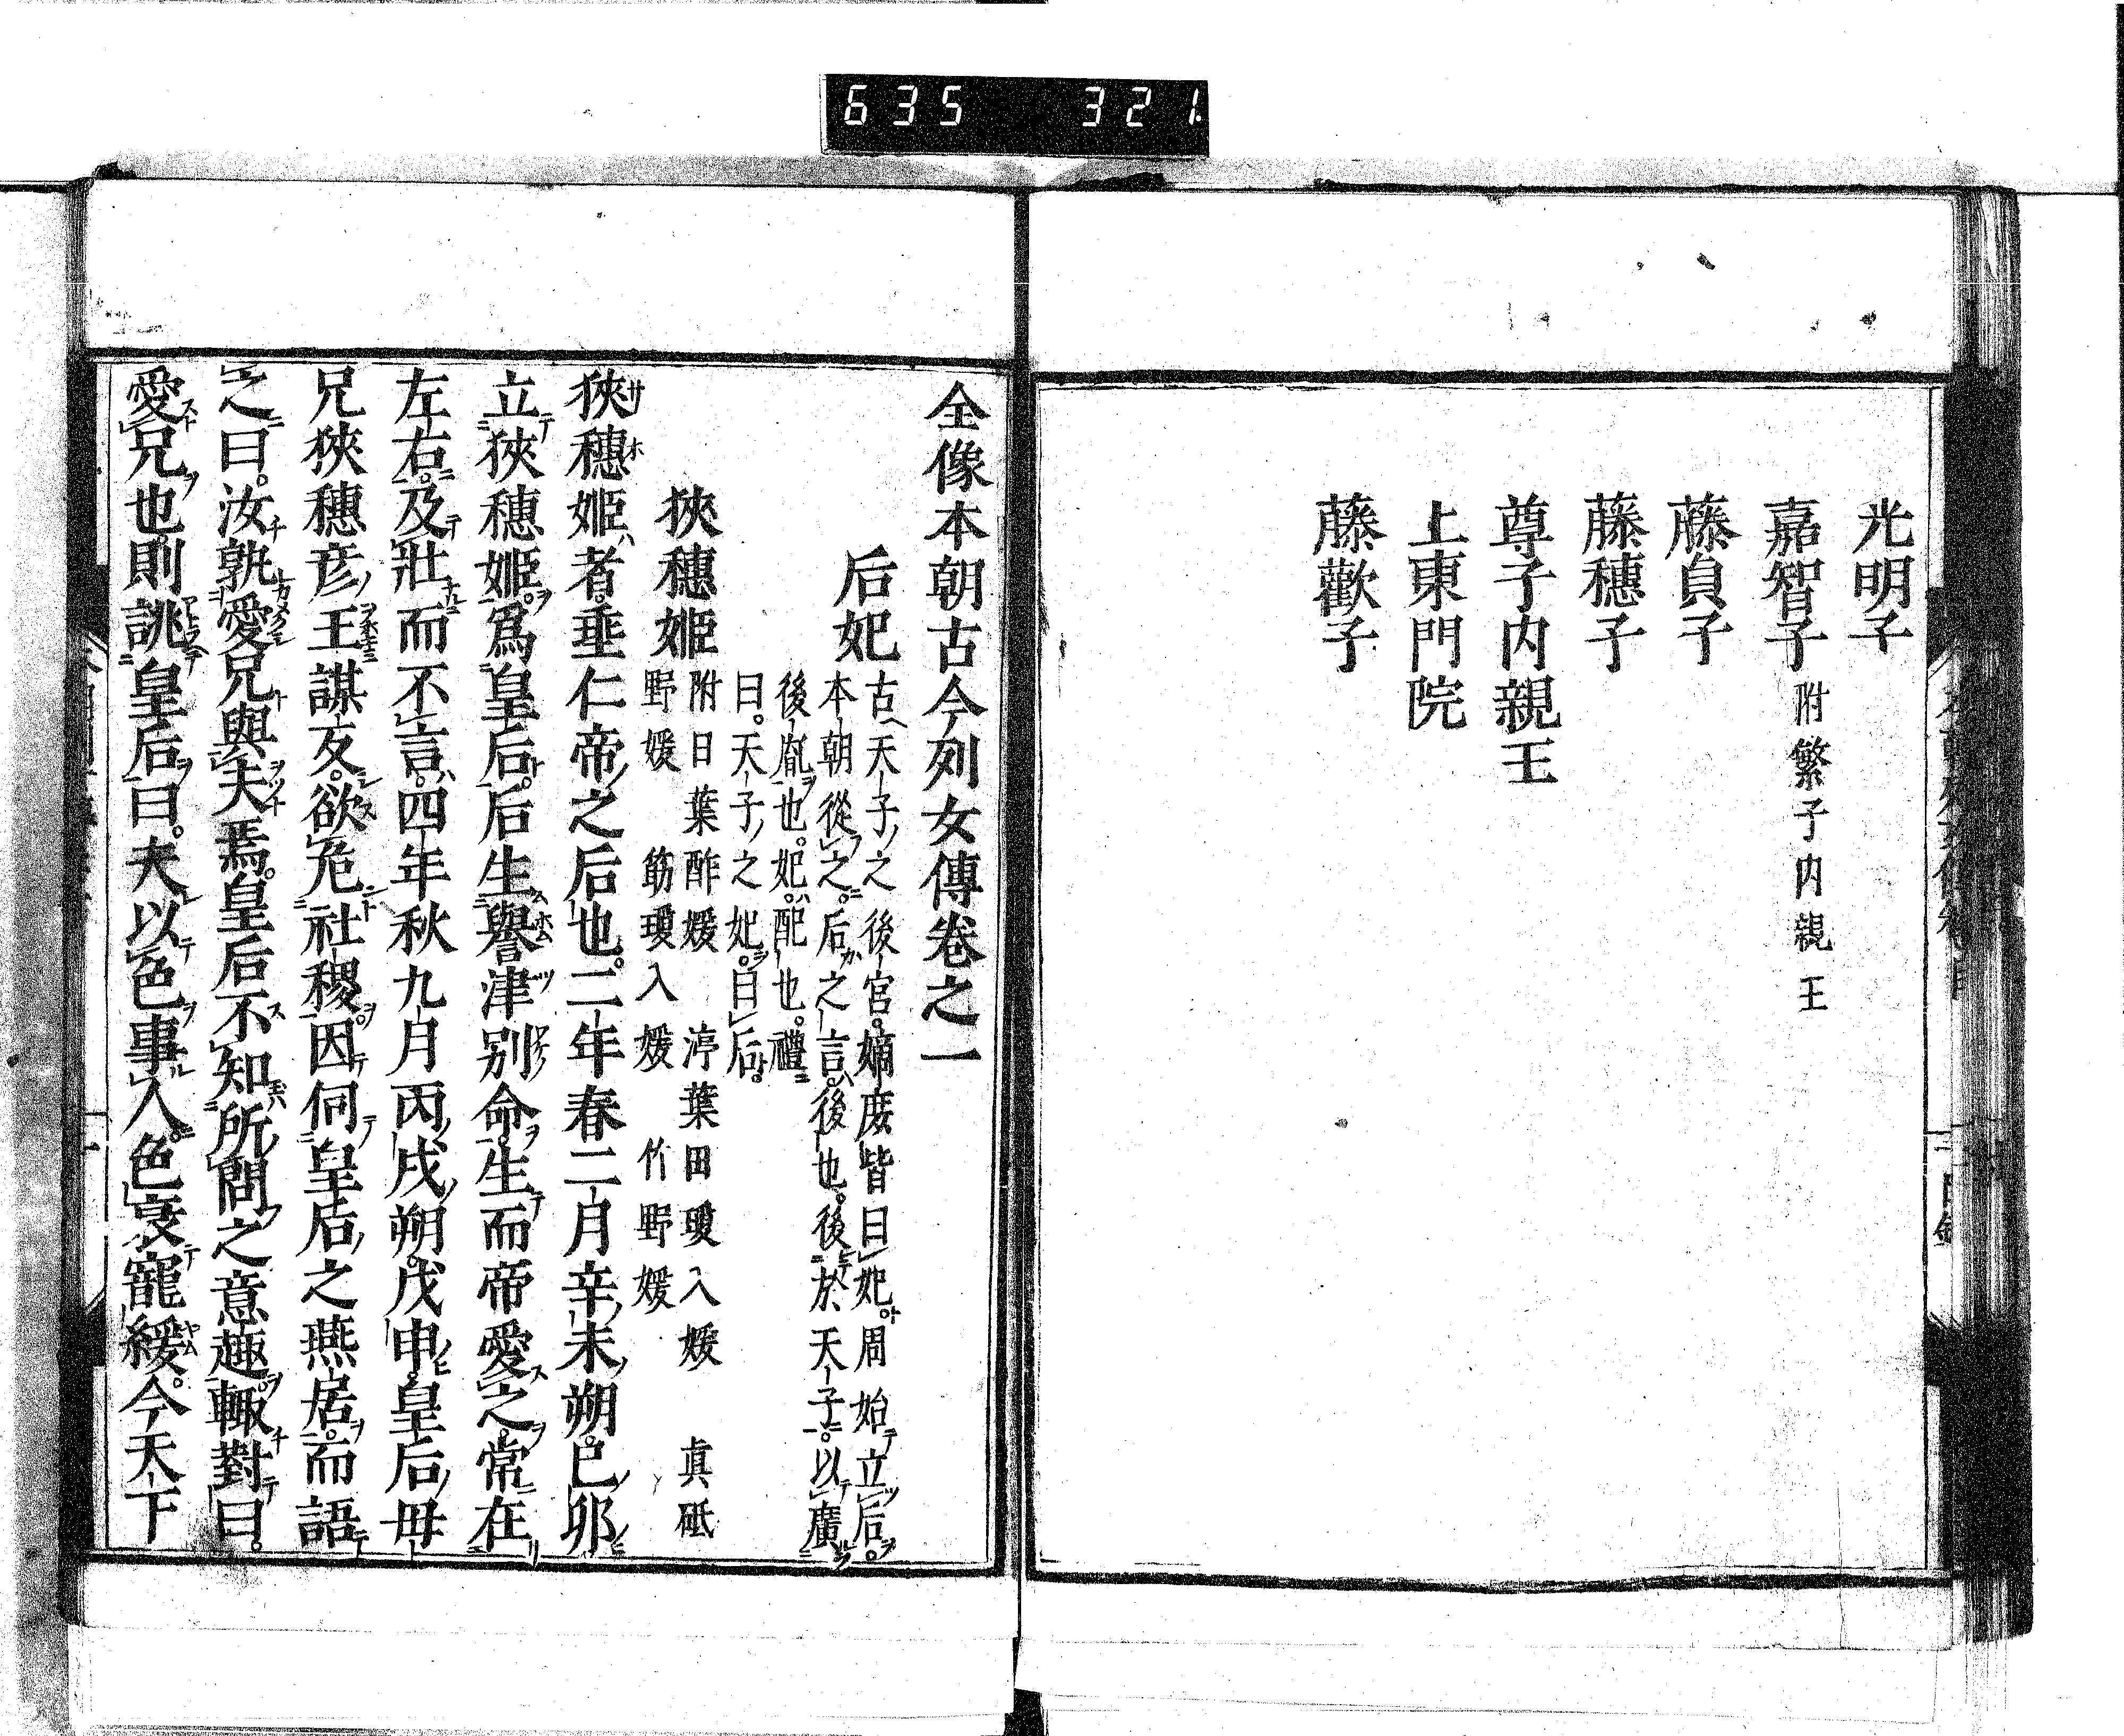 635 321
光明子
嘉智子 附繁子内親王
藤貞子
藤穗子
尊子内親王
上東門院
藤歡子
全像本朝古今列女傳卷之一
后妃
古天子之後宮。嫡庶皆曰妃。周始立后。
本朝從之。后之言。後也。後於天子。以廣
後胤也。妃。配也。禮
曰。天子之妃。曰后。
狹穗姬
附日葉酢媛 渟葉田瓊入媛 眞砥
野媛 筋瓊入媛 竹野媛
狹穗姬者。垂仁帝之后也。二年春二月辛未朔。己卯
立狹穗姬。爲皇后。后生譽津別命。生而帝愛之。常在
左右。及壯而不言。四年秋九月丙戌朔。戊申。皇后母
兄狹穗彥王謀反。欲危社稷。因伺皇后之燕居。而語
之曰。汝孰愛兄與夫焉。皇后不知所問之意趣。輙對曰。
愛兄也則誂皇后曰。夫以色事人。色衰寵緩。今天下